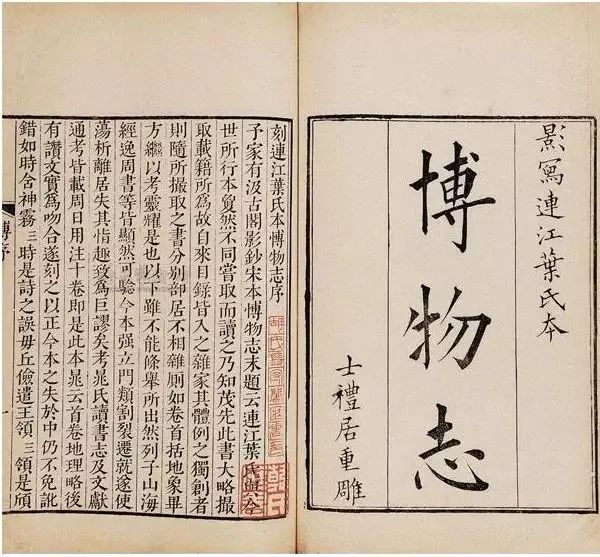 影寫連江葉氏本
博物志
士禮居重雕
刻連江葉氏本博物志序
予家有汲古閣影鈔宋本博物志末題云連江葉氏與今
世所行本夐然不同嘗取而讀之乃知茂先此書大略撮
取載籍所爲故自來目錄皆入之雜家其體例之獨創者
則隨所撮取之書分別部居不相雜厠如卷首括地象畢
方繼以考靈耀是也以下雖不能條舉所出然列子山海
經逸周書等皆顯然可驗今本强立門類割裂遷就遂使
蕩析離居失其指趣致爲巨謬矣考晁氏讀書志及文獻
通考皆載周日用注十卷即是此本晁云首卷地理略後
有讚文實爲吻合遂刻之以正今本之失於中仍不免訛
錯如時含神霧三時是詩之誤毋丘儉遣王領三領是頎
博序
一